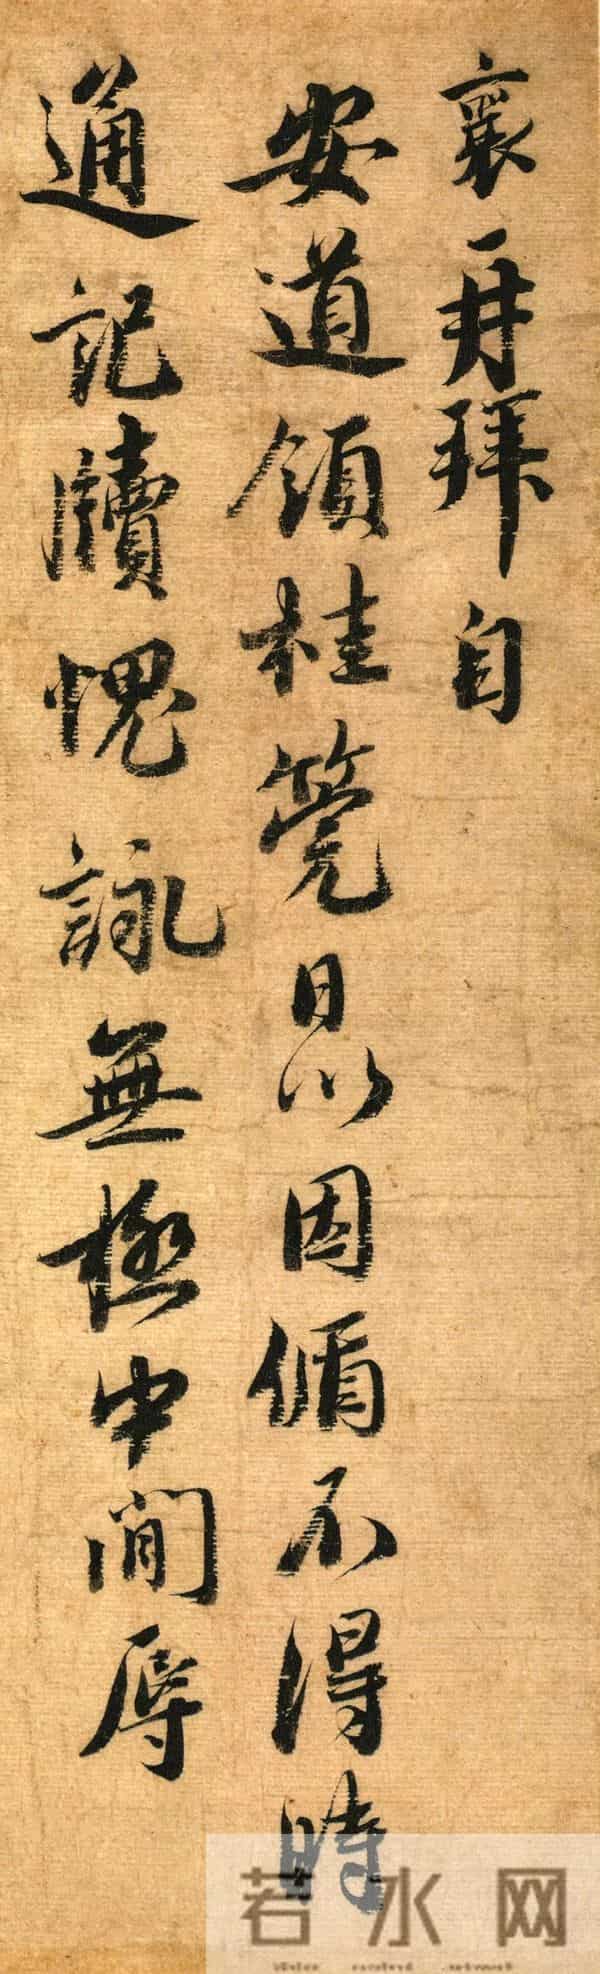 襄再拜自
安道領桂筦日以因循不得時
通記牘愧詠無極中間辱
若水网